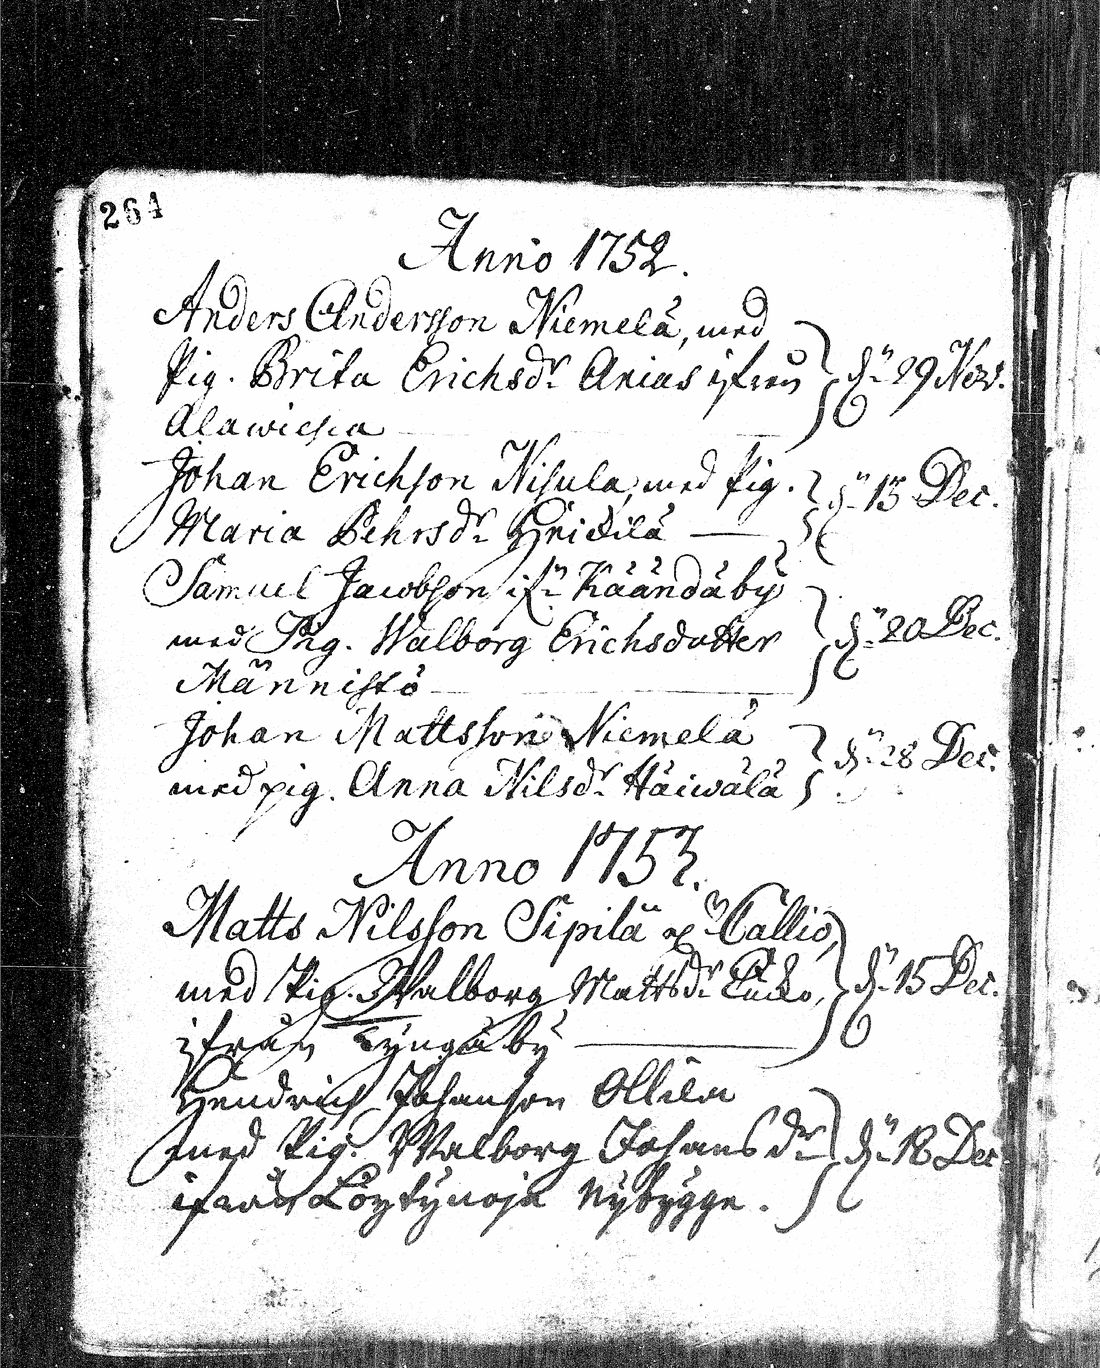 264
Anno 1752.
Anders Andersson Niemelä, med
Pig. Brita Erichsdr. Arias ifrån
Alawieska
dn 29 Nov.
Johan Erichson Nisula, med Pig.
Maria Pehrsdr
dn 15 Dec.
Samuel Jacobson ifn Käändäby
med Pig. Walborg Erichsdotter
Männistö
dn 20 Dec.
Johan Mattsson Niemelä
med pig. Anna Nilsdr. Häiwälä
dn 28 Dec.
Anno 1753.
Matts Nilsson Sipilä Callio,
med Pig. Walborg Mattsdr
ifrån Tyngäby
dn 15 Dec.
Hendrich Johanson Ollila
med Pig. Walborg Johansdr
ifrån Löytynoja Nybygge.
dn 18 Dec